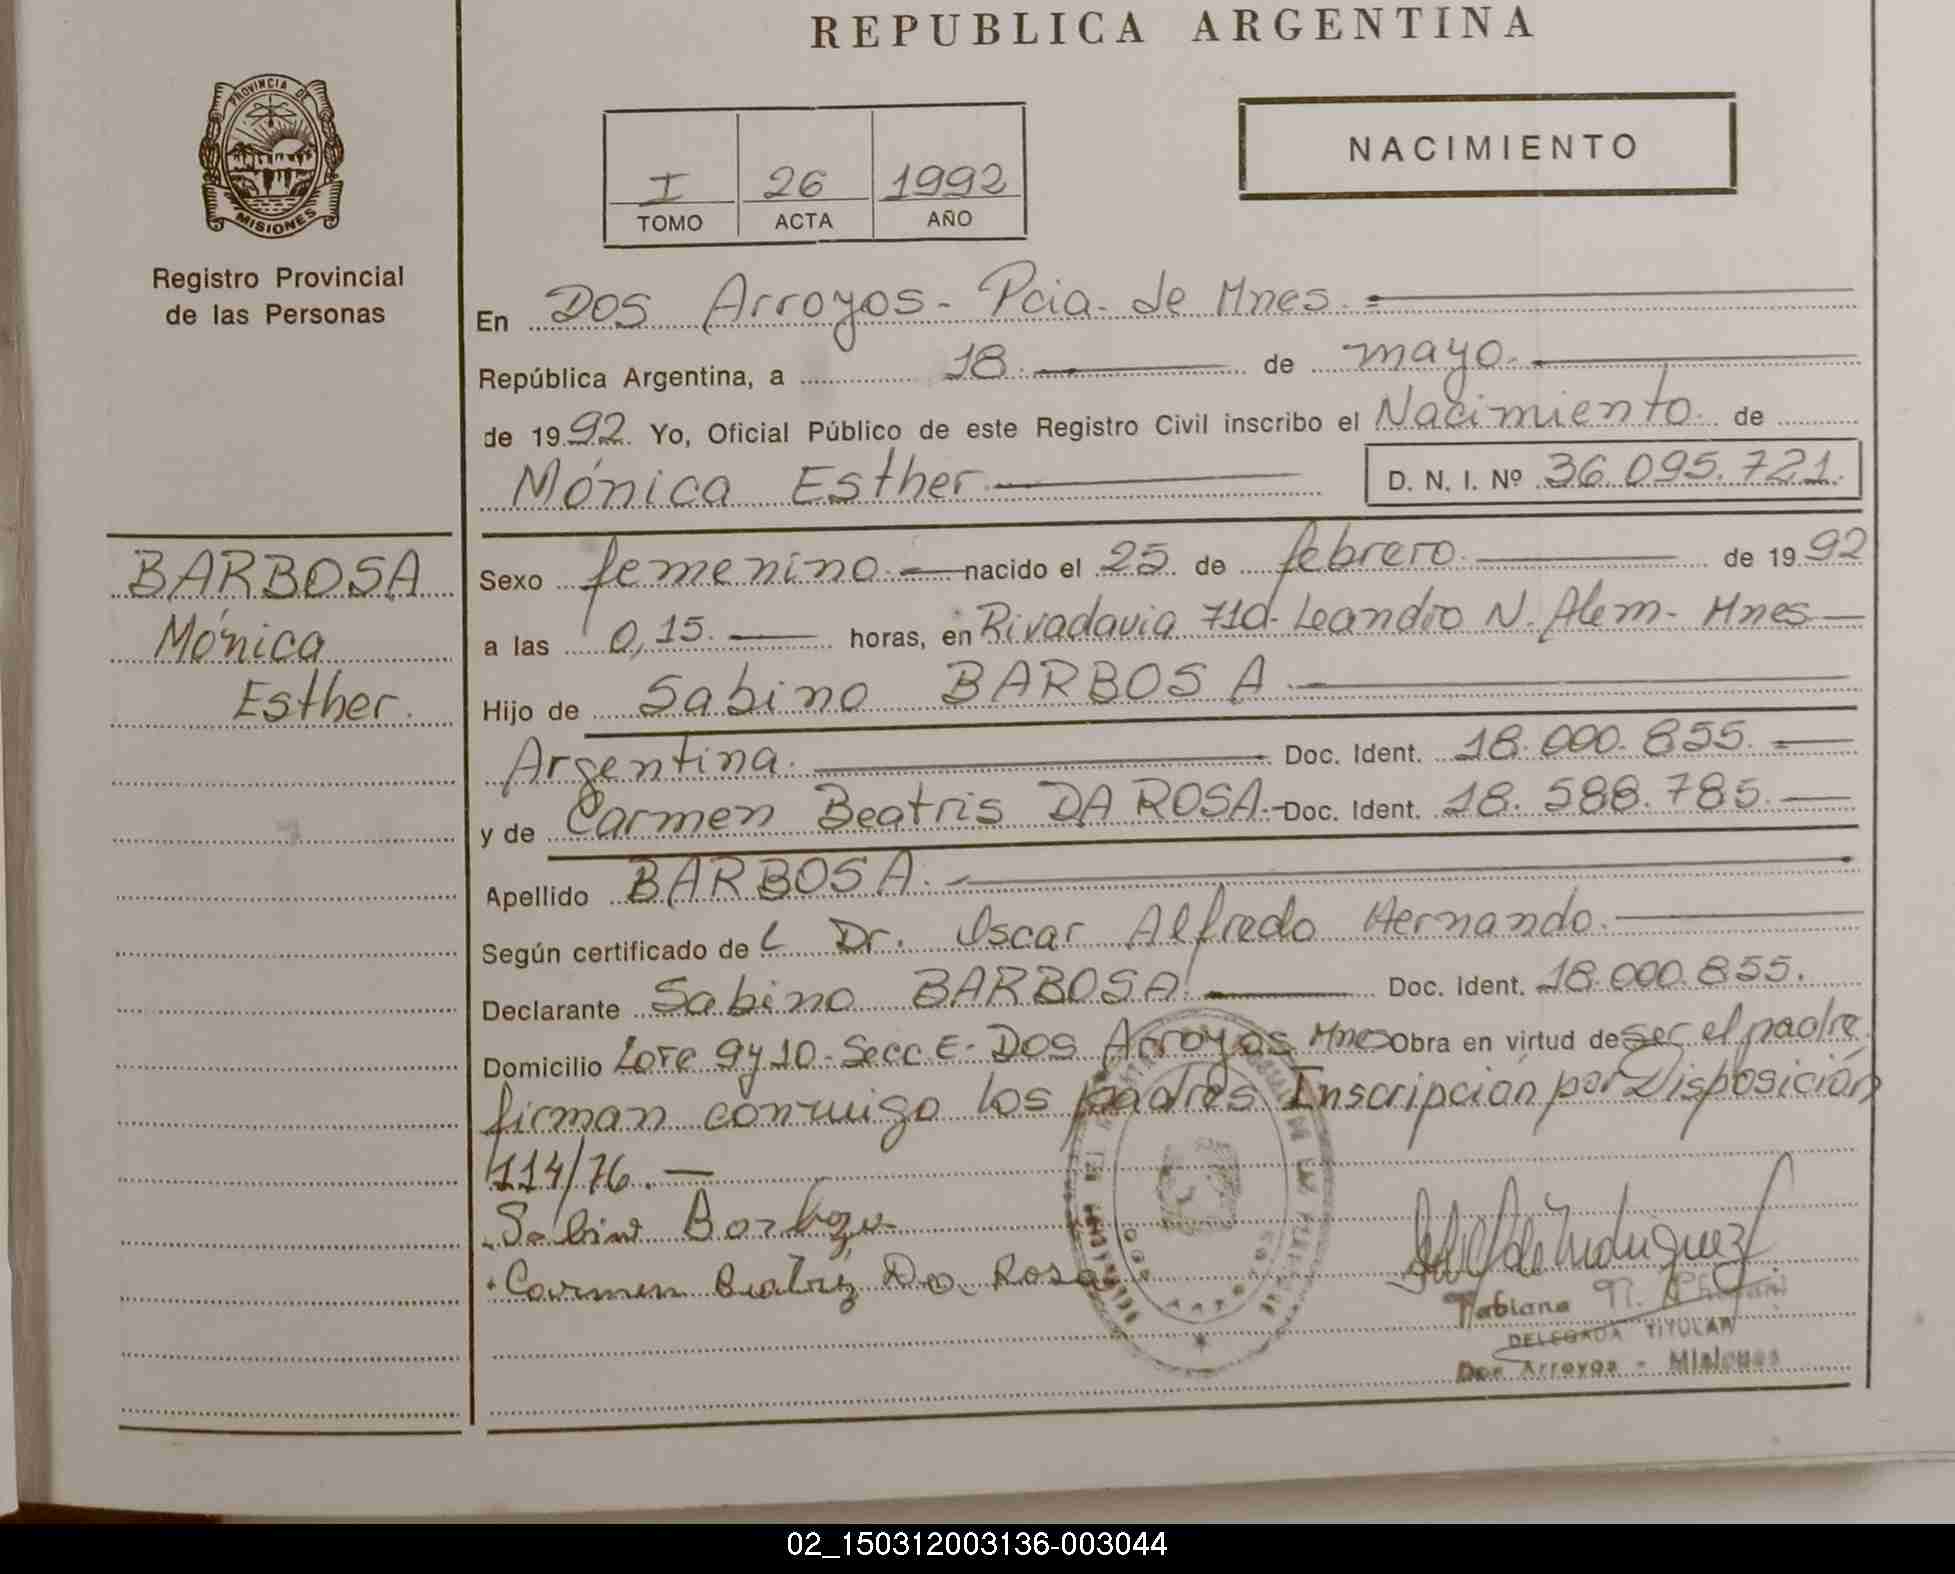 REPUBLICA ARGENTINA
PROVINCIA DE
MISIONES
Registro Provincial
de las Personas
I 26 1992
TOMO ACTA AÑO
NACIMIENTO
En Dos Arroyos - Pcia. de Mnes.
República Argentina, a 18 de mayo
de 1992. Yo, Oficial Público de este Registro Civil inscribo el Nacimiento de
Mónica Esther D. N. I. Nº 36.095.721.
BARBOSA
Mónica
Esther.
Sexo femenino nacido el 25 de febrero de 1992
a las 0,15 horas, en Rivadavia 710 - Leandro N. Alem - Mnes
Hijo de Sabino BARBOSA
Argentina. Doc. Ident. 18.000.855.
y de Carmen Beatris DA ROSA.- Doc. Ident. 18.588.785.
Apellido BARBOSA.
Según certificado de L Dr. Oscar Alfredo Hernando.
Declarante Sabino BARBOSA. Doc. Ident. 18.000.855.
Domicilio Lote 9y10 - Secc E - Dos Arroyos Mnes Obra en virtud de ser el padre
firman conmigo los padres Inscripción por Disposición
114/76.—
Sabino Barboza
Carmen Beatriz Da Rosa
Fabiana
DELEGADA TITULAR
Dos Arroyos - Misiones
02_150312003136-003044